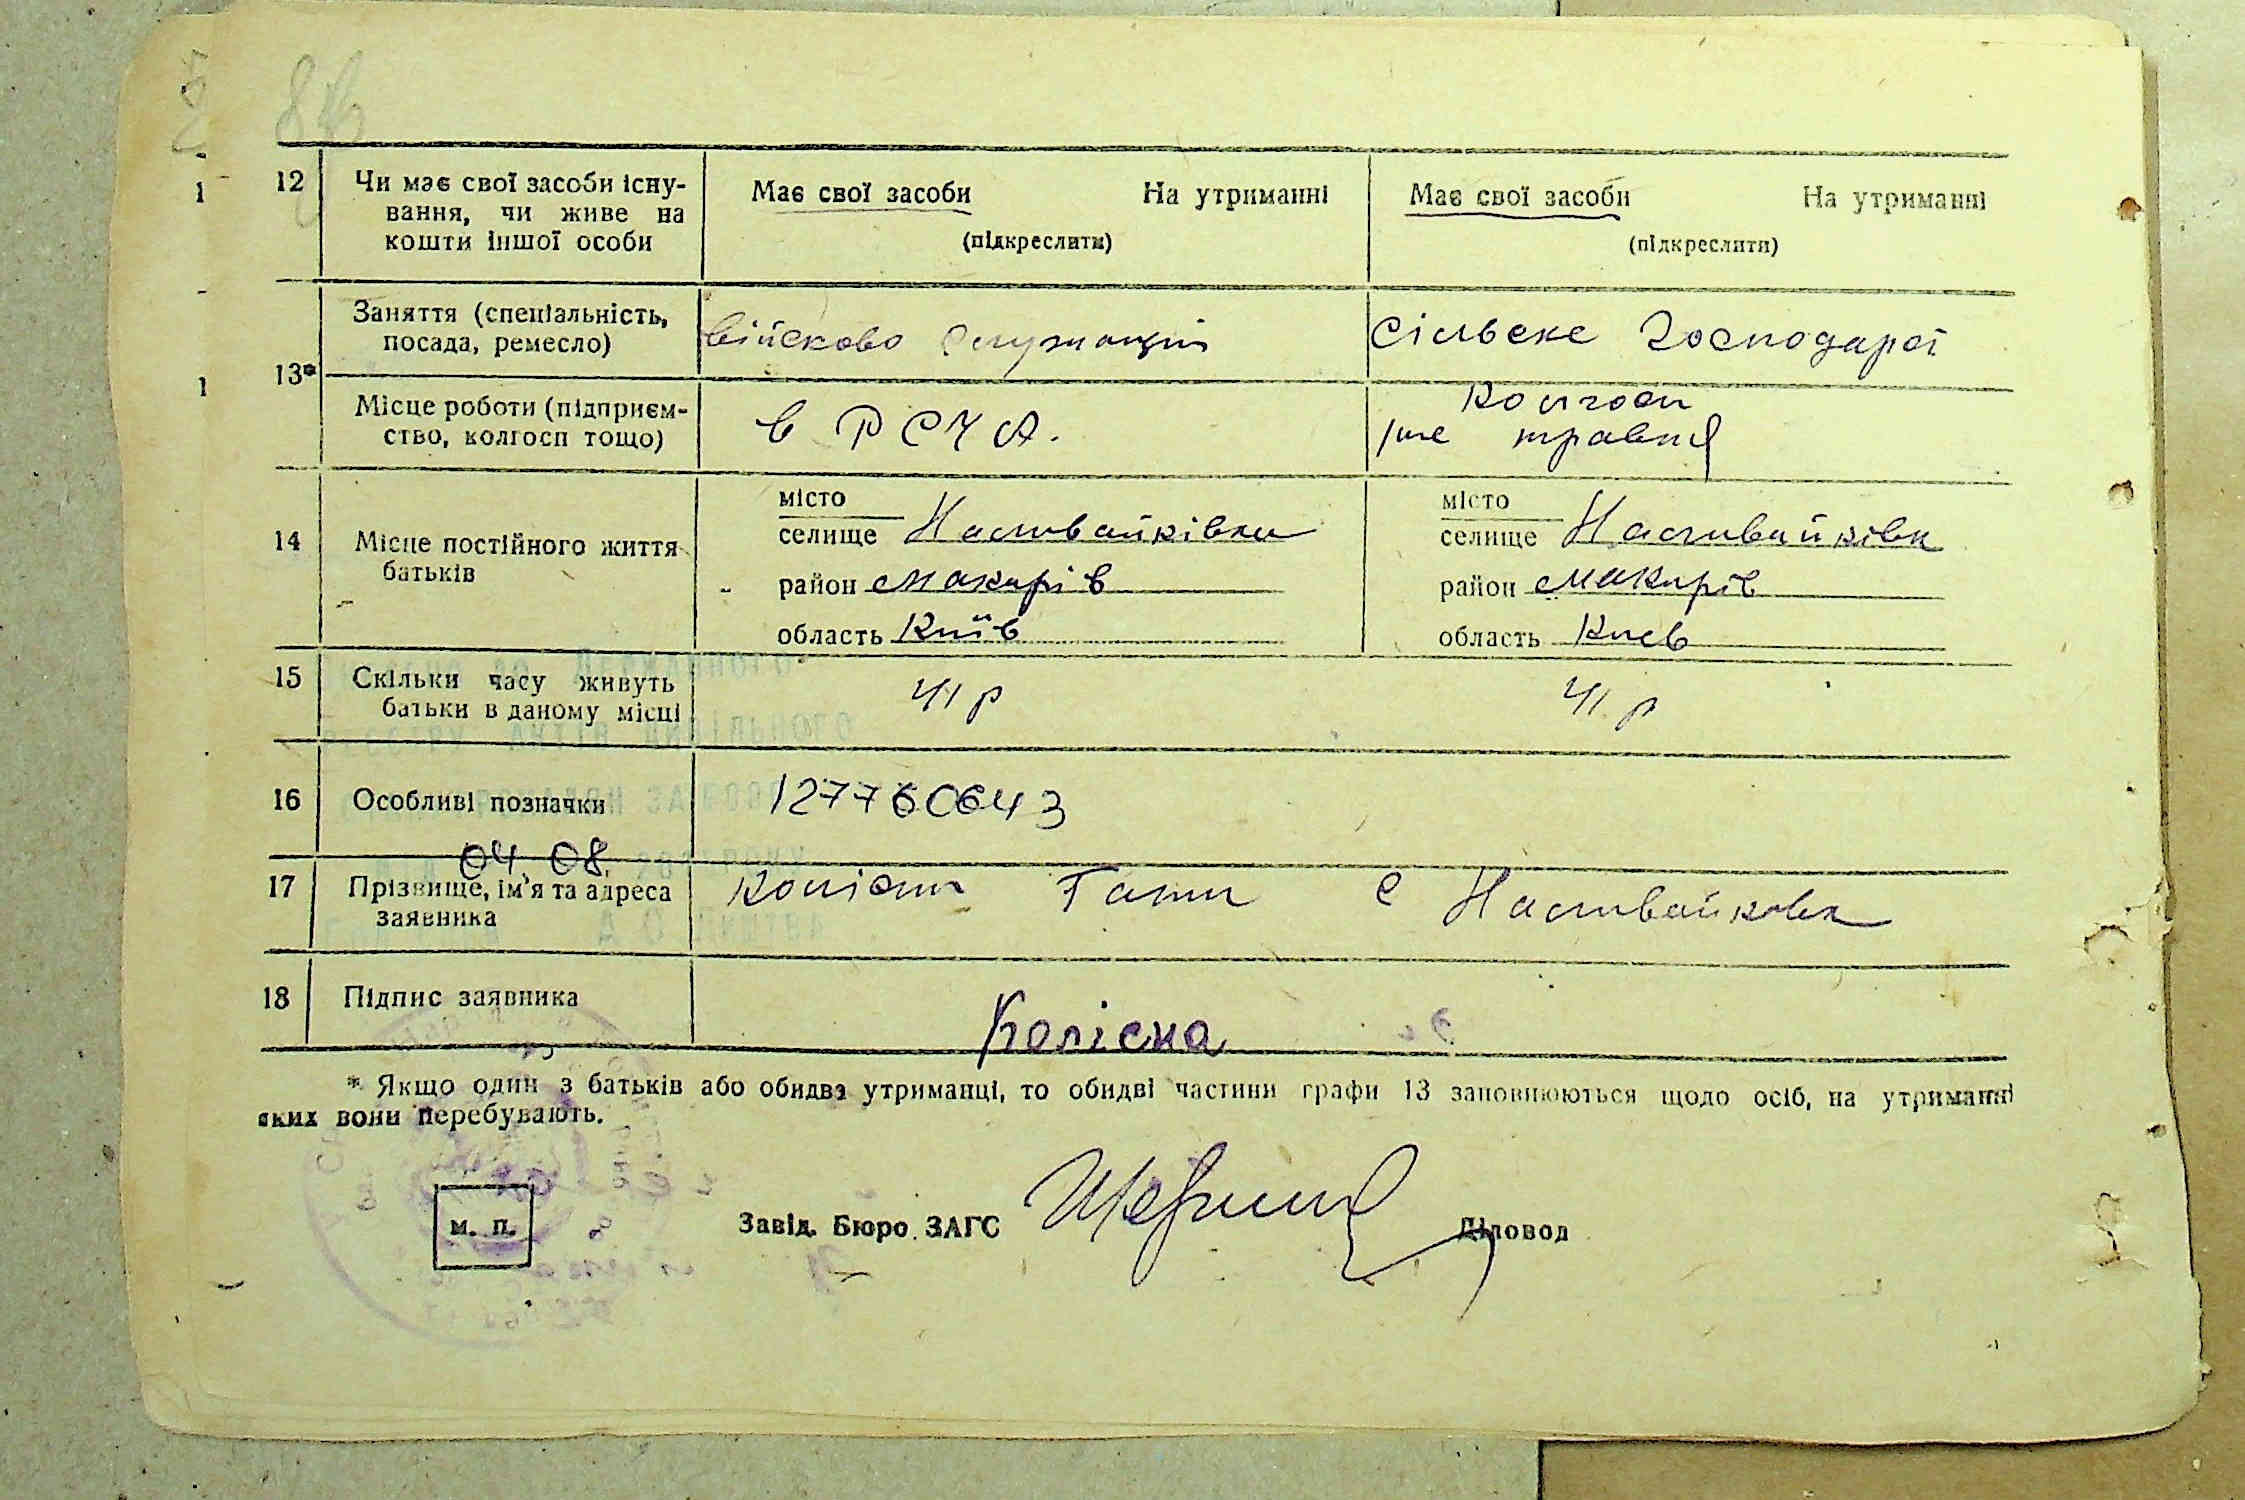 12 Чи має свої засоби існу-
вання, чи живе на
кошти іншої особи
Має свої засоби На утриманні
(підкреслити)
Має свої засоби На утриманні
(підкреслити)
13*
Заняття (спеціальність,
посада, ремесло)
військово служащий
Сільске Господарсі
Місце роботи (підприєм-
ство, колгосп тощо)
в РСЧА.
Колгосп
1ше травня
14 Місце постійного життя
батьків
місто
селище Наливайківка
район Макарів
область Київ
місто
селище Наливайківк
район Макарів
область Киев
15 Скільки часу живуть
батьки в даному місці
41 р
41 р
16 Особливі позначки
127760643
04 08
17 Прізвище, ім'я та адреса
заявника
Галя с Наливайковк
18 Підпис заявника
Колісна
* Якщо один з батьків або обидва утриманці, то обидві частини графи 13 заповнюються щодо осіб, на утриманні
яких вони перебувають.
м. п.
Завід. Бюро ЗАГС
Діловод